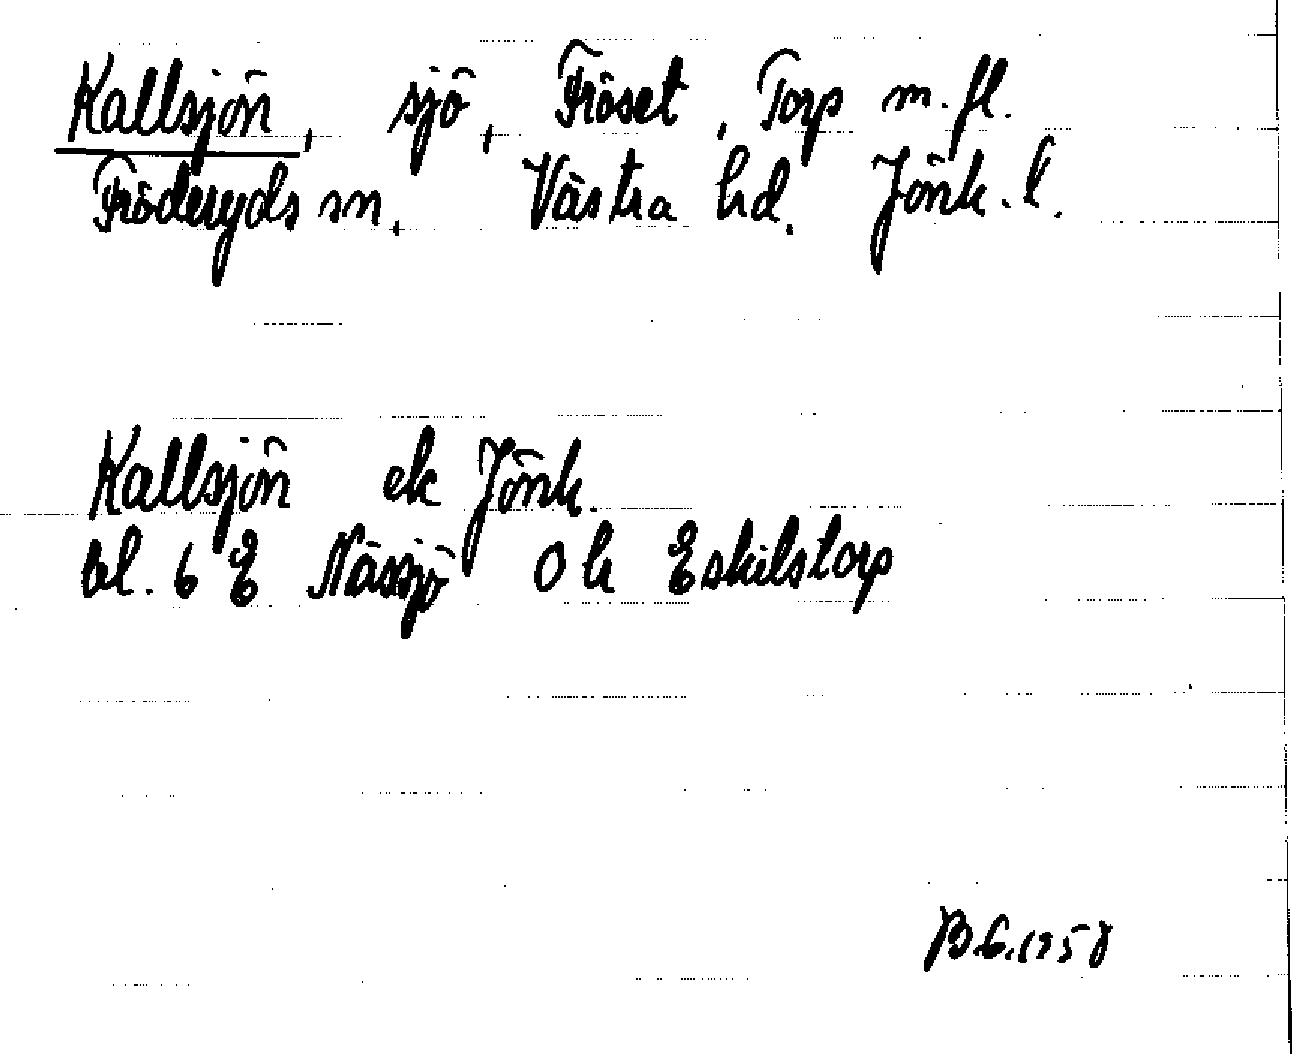 Kallsjön, sjö, Fröset, Torp m.fl.
Fröderyds sn. Västra hd. Jönk. l.
Kallsjön ek Jönk.
bl. 6 E Nässjö O h Eskilstorp
B.G. 1958